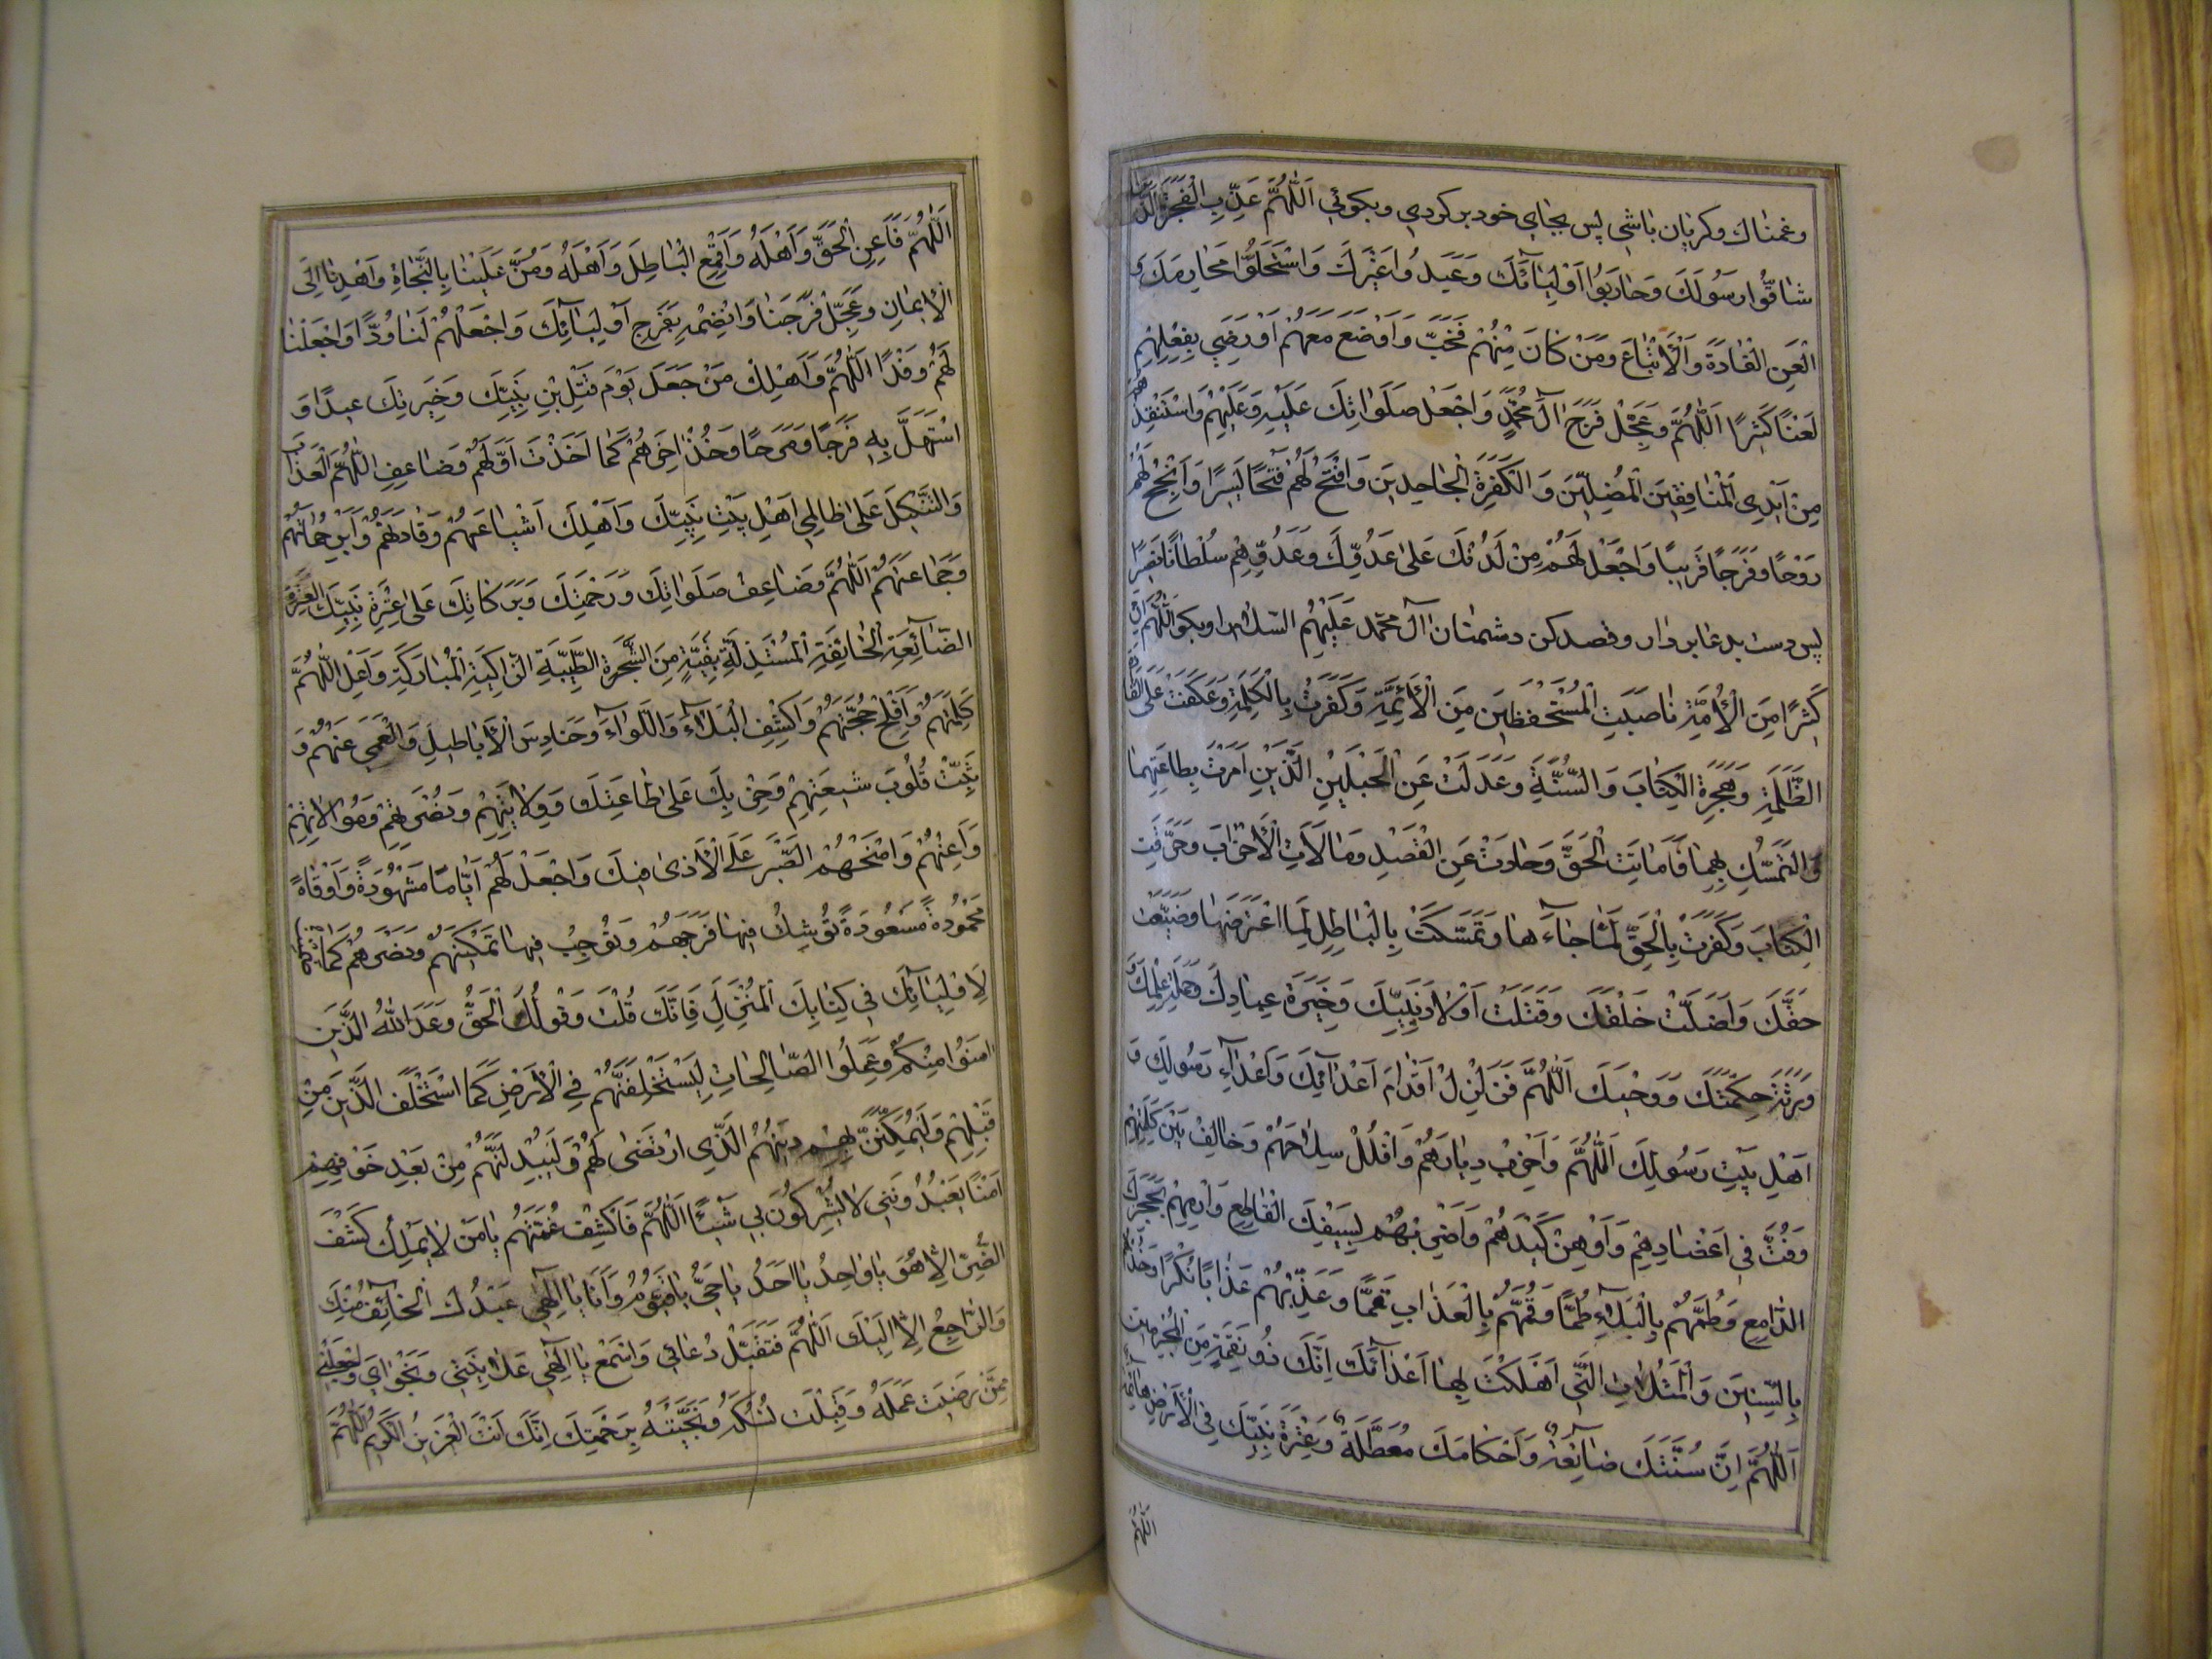 وغمناك وكريان باشي پس بجاي خود برگردي وبگوئي اَللّٰهُمَّ عَذِّبِ الْفَجَرَةَ الَّذينَ
شاقُّوا رَسُولَكَ وَحارَبُوا اَوْلِيآئَكَ وَعَبَدُوا غَيْرَكَ وَاسْتَحَلُّوا مَحارِمَكَ وَ
الْعَنِ الْقادَةَ وَالْاَتْباعَ وَمَنْ كانَ مِنْهُمْ فَخَبَّ وَاَوْضَعَ مَعَهُمْ اَوْ رَضِيَ بِفِعْلِهِمْ
لَعْنًا كَثيرًا اَللّٰهُمَّ وَعَجِّلْ فَرَجَ آلِ مُحَمَّدٍ وَاجْعَلْ صَلَواتِكَ عَلَيْهِ وَعَلَيْهِمْ وَاسْتَنْقِذْهُمْ
مِنْ اَيْدِي الْمُنافِقينَ الْمُضِلّينَ وَالْكَفَرَةِ الْجاحِدينَ وَافْتَحْ لَهُمْ فَتْحًا يَسيرًا وَاَتِحْ لَهُمْ
رَوْحًا وَفَرَجًا قَريبًا وَاجْعَلْ لَهُمْ مِنْ لَدُنْكَ عَلى عَدُوِّكَ وَعَدُوِّهِمْ سُلْطانًا نَصيرًا
پس دست بدعا بردار وقصد كن دشمنان آل محمد عَلَيْهِمُ السلام را وبگو اَللّٰهُمَّ اِنَّ
كَثيرًا مِنَ الْاُمَّةِ ناصَبَتِ الْمُسْتَحْفَظينَ مِنَ الْاَئِمَّةِ وَكَفَرَتْ بِالْكَلِمَةِ وَعَكَفَتْ عَلَى الْقادَةِ
الظَّلَمَةِ وَهَجَرَتِ الْكِتابَ وَالسُّنَّةَ وَعَدَلَتْ عَنِ الْحَبْلَيْنِ الَّذَيْنِ اَمَرْتَ بِطاعَتِهِما
وَالتَّمَسُّكِ بِهِما فَاَماتَتِ الْحَقَّ وَحادَتْ عَنِ الْقَصْدِ وَمالَاَتِ الْاَحْزابَ وَحَرَّفَتِ
الْكِتابَ وَكَفَرَتْ بِالْحَقِّ لَمّا جاءَها وَتَمَسَّكَتْ بِالْباطِلِ لَمَّا اعْتَرَضَها وَضَيَّعَتْ
حَقَّكَ وَاَضَلَّتْ خَلْقَكَ وَقَتَلَتْ اَوْلادَ نَبِيِّكَ وَخِيَرَةَ عِبادِكَ وَحَمَلَةَ عِلْمِكَ وَ
وَرَثَةَ حِكْمَتِكَ وَوَحْيِكَ اَللّٰهُمَّ فَزَلْزِلْ اَقْدامَ اَعْدآئِكَ وَاَعْدآءِ رَسُولِكَ وَ
اَهْلِ بَيْتِ رَسُولِكَ اَللّٰهُمَّ وَاَخْرِبْ دِيارَهُمْ وَافْلُلْ سِلاحَهُمْ وَخالِفْ بَيْنَ كَلِمَتِهِمْ
وَفُتَّ في اَعْضادِهِمْ وَاَوْهِنْ كَيْدَهُمْ وَاضْرِبْهُمْ بِسَيْفِكَ الْقاطِعِ وَارْمِهِمْ بِحَجَرِكَ
الدّامِغِ وَطُمَّهُمْ بِالْبَلآءِ طَمًّا وَقُمَّهُمْ بِالْعَذابِ قَمًّا وَعَذِّبْهُمْ عَذابًا نُكْرًا وَخُذْهُمْ
بِالسِّنينَ وَالْمَثُلاتِ الَّتي اَهْلَكْتَ بِها اَعْدآئَكَ اِنَّكَ ذُو نَقِمَةٍ مِنَ الْمُجْرِمينَ
اَللّٰهُمَّ اِنَّ سُنَّتَكَ ضآئِعَةٌ وَاَحْكامَكَ مُعَطَّلَةٌ وَعِتْرَةَ نَبِيِّكَ فِي الْاَرْضِ هآئِمَةٌ
اللّٰهُمَّ
اَللّٰهُمَّ فَاَعِنِ الْحَقَّ وَاَهْلَهُ وَاقْمَعِ الْباطِلَ وَاَهْلَهُ وَمُنَّ عَلَيْنا بِالنَّجاةِ وَاهْدِنا اِلَى
الْايمانِ وَعَجِّلْ فَرَجَنا وَانْظِمْهُ بِفَرَجِ اَوْلِيآئِكَ وَاجْعَلْهُمْ لَنا وُدًّا وَاجْعَلْنا
لَهُمْ وَفْدًا اَللّٰهُمَّ وَاَهْلِكْ مَنْ جَعَلَ يَوْمَ قَتْلِ ابْنِ نَبِيِّكَ وَخِيَرَتِكَ عيدًا وَ
اسْتَهَلَّ بِهِ فَرَحًا وَمَرَحًا وَخُذْ اخِرَهُمْ كَما اَخَذْتَ اَوَّلَهُمْ وَضاعِفِ اللّٰهُمَّ الْعَذابَ
وَالتَّنْكيلَ عَلى ظالِمي اَهْلِ بَيْتِ نَبِيِّكَ وَاَهْلِكْ اَشْياعَهُمْ وَقادَتَهُمْ وَاَبِرْ حُماتَهُمْ
وَجَماعَتَهُمْ اَللّٰهُمَّ وَضاعِفْ صَلَواتِكَ وَرَحْمَتَكَ وَبَرَكاتِكَ عَلى عِتْرَةِ نَبِيِّكَ الْعِتْرَةِ
الضّآئِعَةِ الْخائِفَةِ الْمُسْتَذَلَّةِ بَقِيَّةٍ مِنَ الشَّجَرَةِ الطَّيِّبَةِ الزّاكِيَةِ الْمُبارَكَةِ وَاَعْلِ اللّٰهُمَّ
كَلِمَتَهُمْ وَاَفْلِجْ حُجَّتَهُمْ وَاكْشِفِ الْبَلآءَ وَاللَّاْوآءَ وَحَنادِسَ الْاَباطيلِ وَالْعَمى عَنْهُمْ وَ
ثَبِّتْ قُلُوبَ شيعَتِهِمْ وَحِزْبِكَ عَلى طاعَتِكَ وَوِلايَتِهِمْ وَنُصْرَتِهِمْ وَمُوالاتِهِمْ
وَاَعِنْهُمْ وَامْنَحْهُمُ الصَّبْرَ عَلَى الْاَذى فيكَ وَاجْعَلْ لَهُمْ اَيّامًا مَشْهُودَةً وَاَوْقاتًا
مَحْمُودَةً مَسْعُودَةً تُوشِكُ فيها فَرَجَهُمْ وَتُوجِبُ فيها تَمْكينَهُمْ وَنَصْرَهُمْ كَما ضَمِنْتَ
لِاَوْلِيآئِكَ في كِتابِكَ الْمُنْزَلِ فَاِنَّكَ قُلْتَ وَقَوْلُكَ الْحَقُّ وَعَدَ اللّٰهُ الَّذينَ
امَنُوا مِنْكُمْ وَعَمِلُوا الصّالِحاتِ لَيَسْتَخْلِفَنَّهُمْ فِي الْاَرْضِ كَمَا اسْتَخْلَفَ الَّذينَ مِنْ
قَبْلِهِمْ وَلَيُمَكِّنَنَّ لَهُمْ دينَهُمُ الَّذِي ارْتَضى لَهُمْ وَلَيُبَدِّلَنَّهُمْ مِنْ بَعْدِ خَوْفِهِمْ
اَمْنًا يَعْبُدُونَني لا يُشْرِكُونَ بي شَيْئًا اَللّٰهُمَّ فَاكْشِفْ غُمَّتَهُمْ يا مَنْ لا يَمْلِكُ كَشْفَ
الضُّرِّ اِلّا هُوَ يا واحِدُ يا اَحَدُ يا حَيُّ يا قَيُّومُ وَاَنَا يا اِلهي عَبْدُكَ الْخآئِفُ مِنْكَ
وَالرّاجِعُ اِلَيْكَ اَللّٰهُمَّ فَتَقَبَّلْ دُعائي وَاسْمَعْ يا اِلهي عَلانِيَتي وَنَجْوايَ وَاجْعَلْني
مِمَّنْ رَضيتَ عَمَلَهُ وَقَبِلْتَ نُسُكَهُ وَنَجَّيْتَهُ بِرَحْمَتِكَ اِنَّكَ اَنْتَ الْعَزيزُ الْكَريمُ اَللّٰهُمَّ